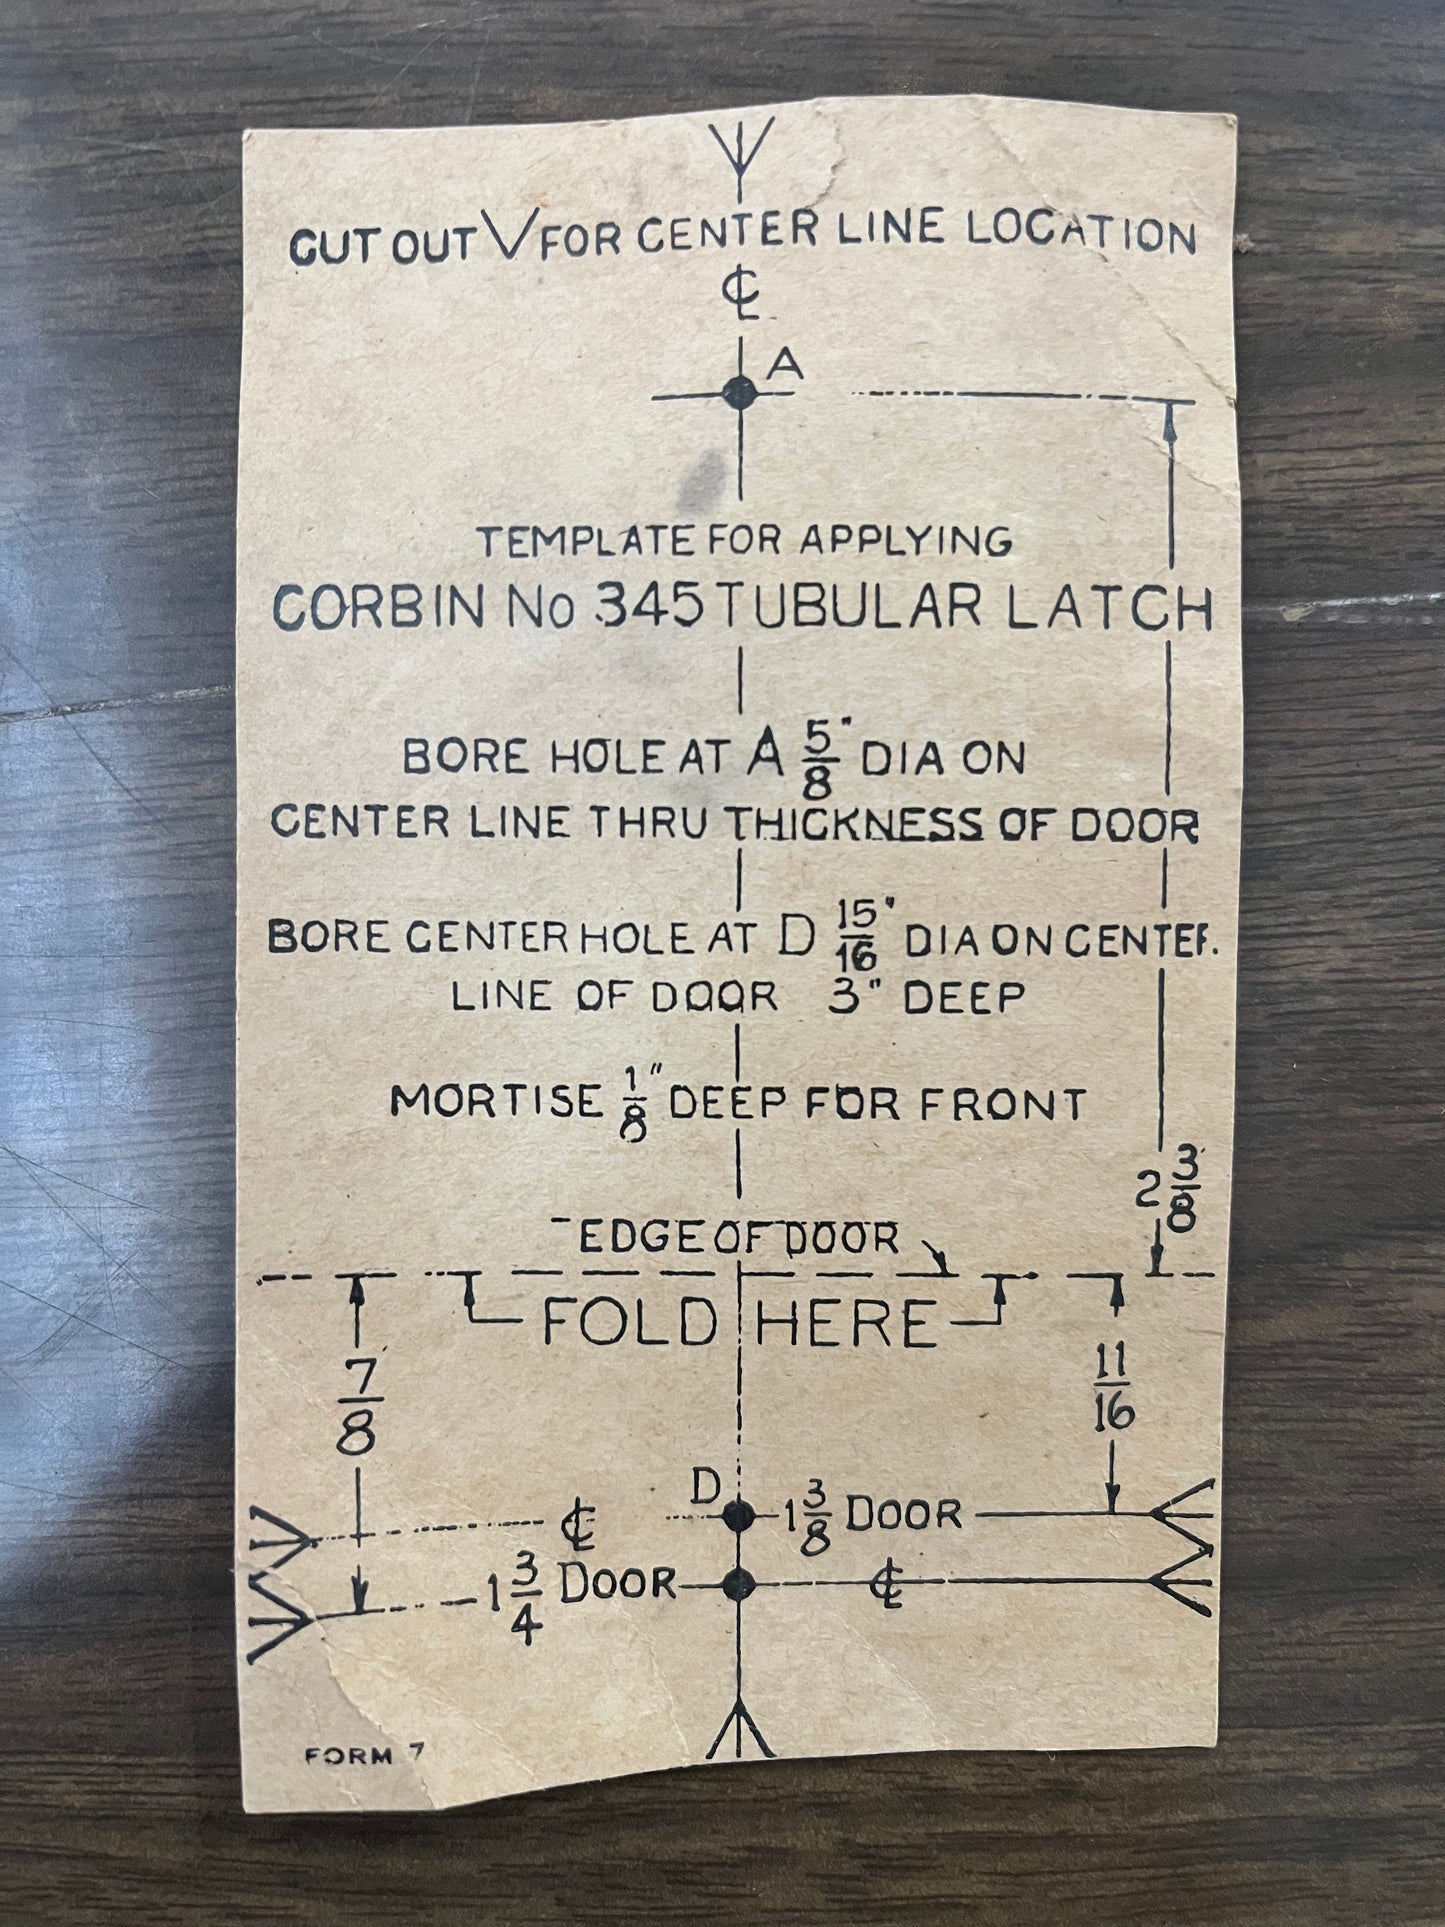 CUT OUT V FOR CENTER LINE LOCATION
℄
A
TEMPLATE FOR APPLYING
CORBIN No 345 TUBULAR LATCH
BORE HOLE AT A 5/8" DIA ON
CENTER LINE THRU THICKNESS OF DOOR
BORE CENTER HOLE AT D 15/16" DIA ON CENTER
LINE OF DOOR 3" DEEP
MORTISE 1/8" DEEP FOR FRONT
2 3/8
EDGE OF DOOR
FOLD HERE
7/8
11/16
D
℄ 1 3/8 DOOR
1 3/4 DOOR ℄
FORM 7